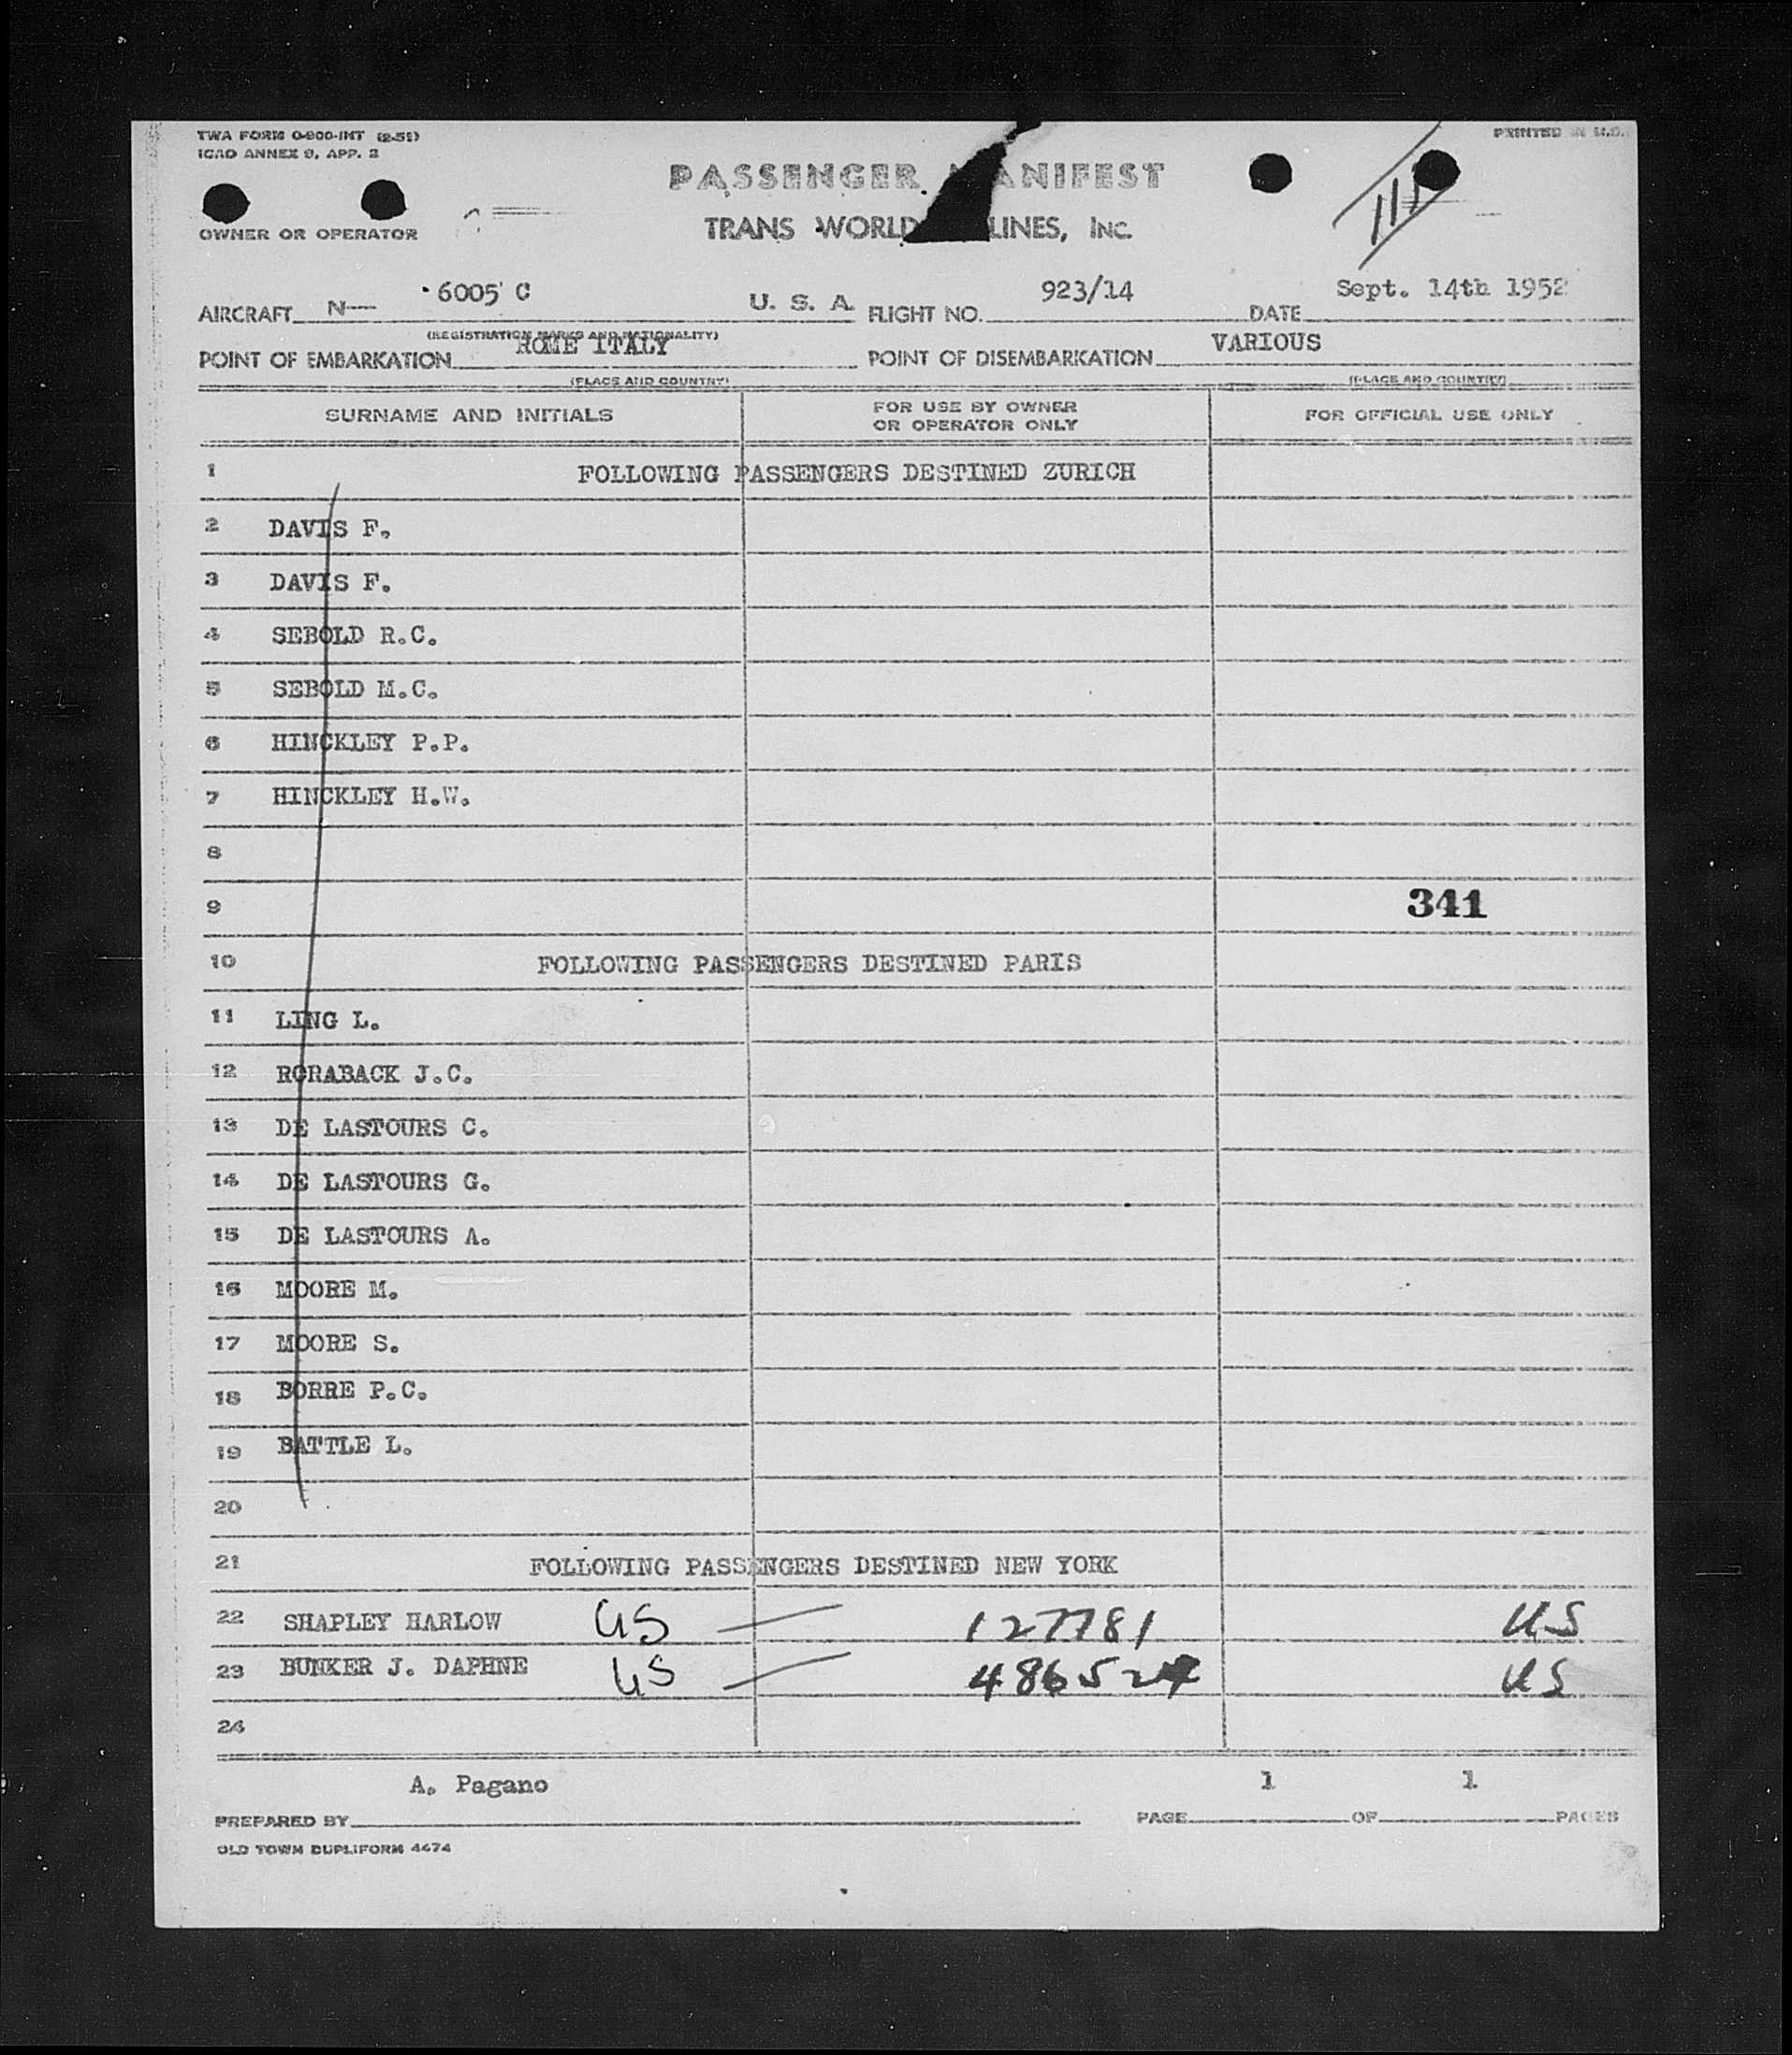 TWA FORM O-900-INT (2-51)
ICAO ANNEX 9, APP. 2
PRINTED IN U.S.
PASSENGER ANIFEST
OWNER OR OPERATOR
TRANS WORLD LINES, INC.
AIRCRAFT N— 6005 C U. S. A. FLIGHT NO. 923/14 DATE Sept. 14th 1952
(REGISTRATION MARKS AND NATIONALITY)
POINT OF EMBARKATION ROME ITALY POINT OF DISEMBARKATION VARIOUS
(PLACE AND COUNTRY) (PLACE AND COUNTRY)
SURNAME AND INITIALS FOR USE BY OWNER OR OPERATOR ONLY FOR OFFICIAL USE ONLY
1 FOLLOWING PASSENGERS DESTINED ZURICH
2 DAVIS F.
3 DAVIS F.
4 SEBOLD R.C.
5 SEBOLD M.C.
6 HINCKLEY P.P.
7 HINCKLEY H.W.
8
9 341
10 FOLLOWING PASSENGERS DESTINED PARIS
11 LING L.
12 RORABACK J.C.
13 DE LASTOURS C.
14 DE LASTOURS G.
15 DE LASTOURS A.
16 MOORE M.
17 MOORE S.
18 BORRE P.C.
19 BATTLE L.
20
21 FOLLOWING PASSENGERS DESTINED NEW YORK
22 SHAPLEY HARLOW US — 127781 US
23 BUNKER J. DAPHNE US — 486524 US
24
A. Pagano 1 1
PREPARED BY PAGE OF PAGES
OLD TOWN DUPLIFORM 4474